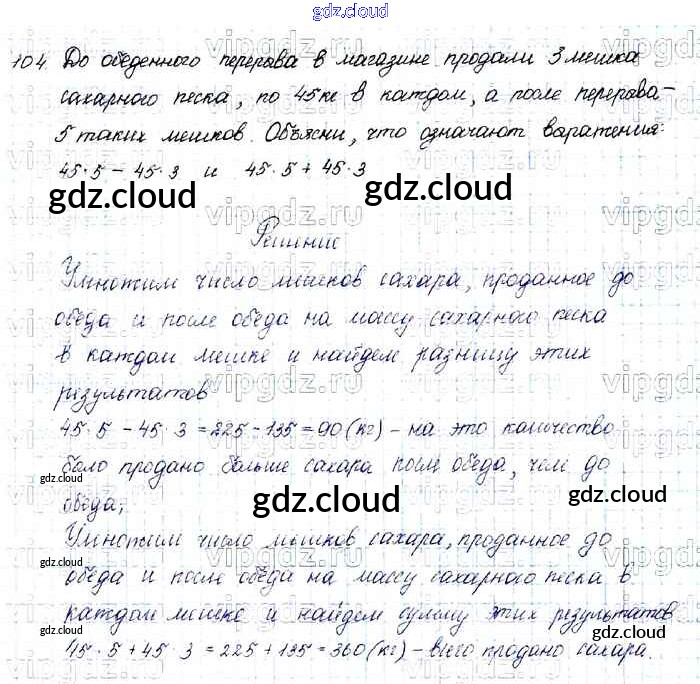 gdz.cloud
104. До обеденного перерыва в магазине продали 3 мешка
сахарного песка, по 45 кг в каждом, а после перерыва –
5 таких мешков. Объясни, что означают выражения:
45·5 – 45·3 и 45·5 + 45·3
gdz.cloud gdz.cloud
Решение
Умножим число мешков сахара, проданное до
обеда и после обеда на массу сахарного песка
в каждом мешке и найдем разницу этих
результатов
45·5 – 45·3 = 225 – 135 = 90 (кг) – на это количество
было продано больше сахара после обеда, чем до
gdz.cloud
обеда;
gdz.cloud gdz.cloud
Умножим число мешков сахара, проданное до
обеда и после обеда на массу сахарного песка в
каждом мешке и найдем сумму этих результатов
gdz.cloud gdz.cloud
45·5 + 45·3 = 225 + 135 = 360 (кг) – всего продано сахара.